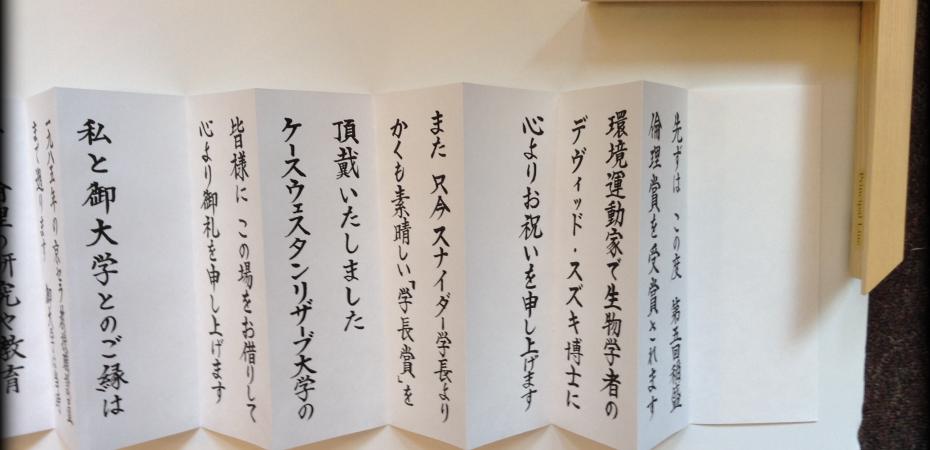 先ずは この度 第五回稲盛
倫理賞を受賞されます
環境運動家で生物学者の
デヴィッド・スズキ博士に
心よりお祝いを申し上げます
また 只今 スナイダー学長より
かくも素晴しい「学長賞」を
頂戴いたしました
ケースウェスタンリザーブ大学の
皆様に この場をお借りして
心より御礼を申し上げます
私と御大学とのご縁は
一九八五年の京セラ
まで遡ります
倫理の研究や教育
Principal Line